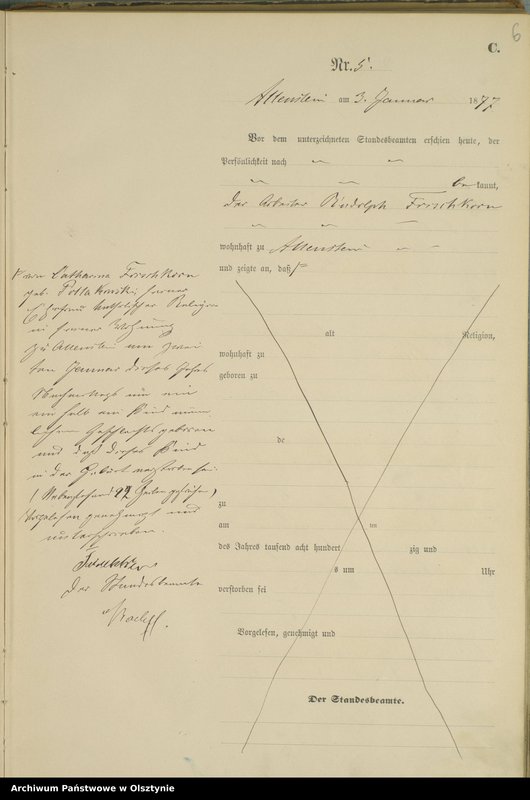 6
C.
Nr. 5.
Allenstein am 3. Januar 1877
Vor dem unterzeichneten Standesbeamten erschien heute, der
Persönlichkeit nach
bekannt,
der Arbeiter Rudolph Frischkorn
wohnhaft zu Allenstein
und zeigte an, daß
Catharina Frischkorn
geb.
Ehefrau katholischer Religion
in seiner Wohnung
zu Allenstein am zwei
ten Januar dieses Jahres
Nachmittags um ein
ein halb ein Kind männ
lichen Geschlechts geboren
und daß dieses Kind
in der Geburt verstorben sei.
Vorgelesen genehmigt und
unterschrieben.
Der Standesbeamte
alt Religion,
wohnhaft zu
geboren zu
de
zu
am ten
des Jahres tausend acht hundert zig und
s um Uhr
verstorben sei
Vorgelesen, genehmigt und
Der Standesbeamte.
Archiwum Państwowe w Olsztynie